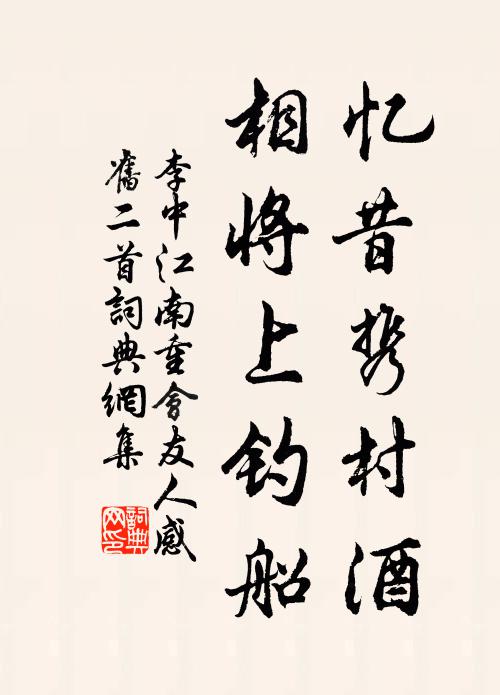 忆昔携村酒
相将上钓船
李中江南重會友人感
舊二首詞典網集
詞典
网印